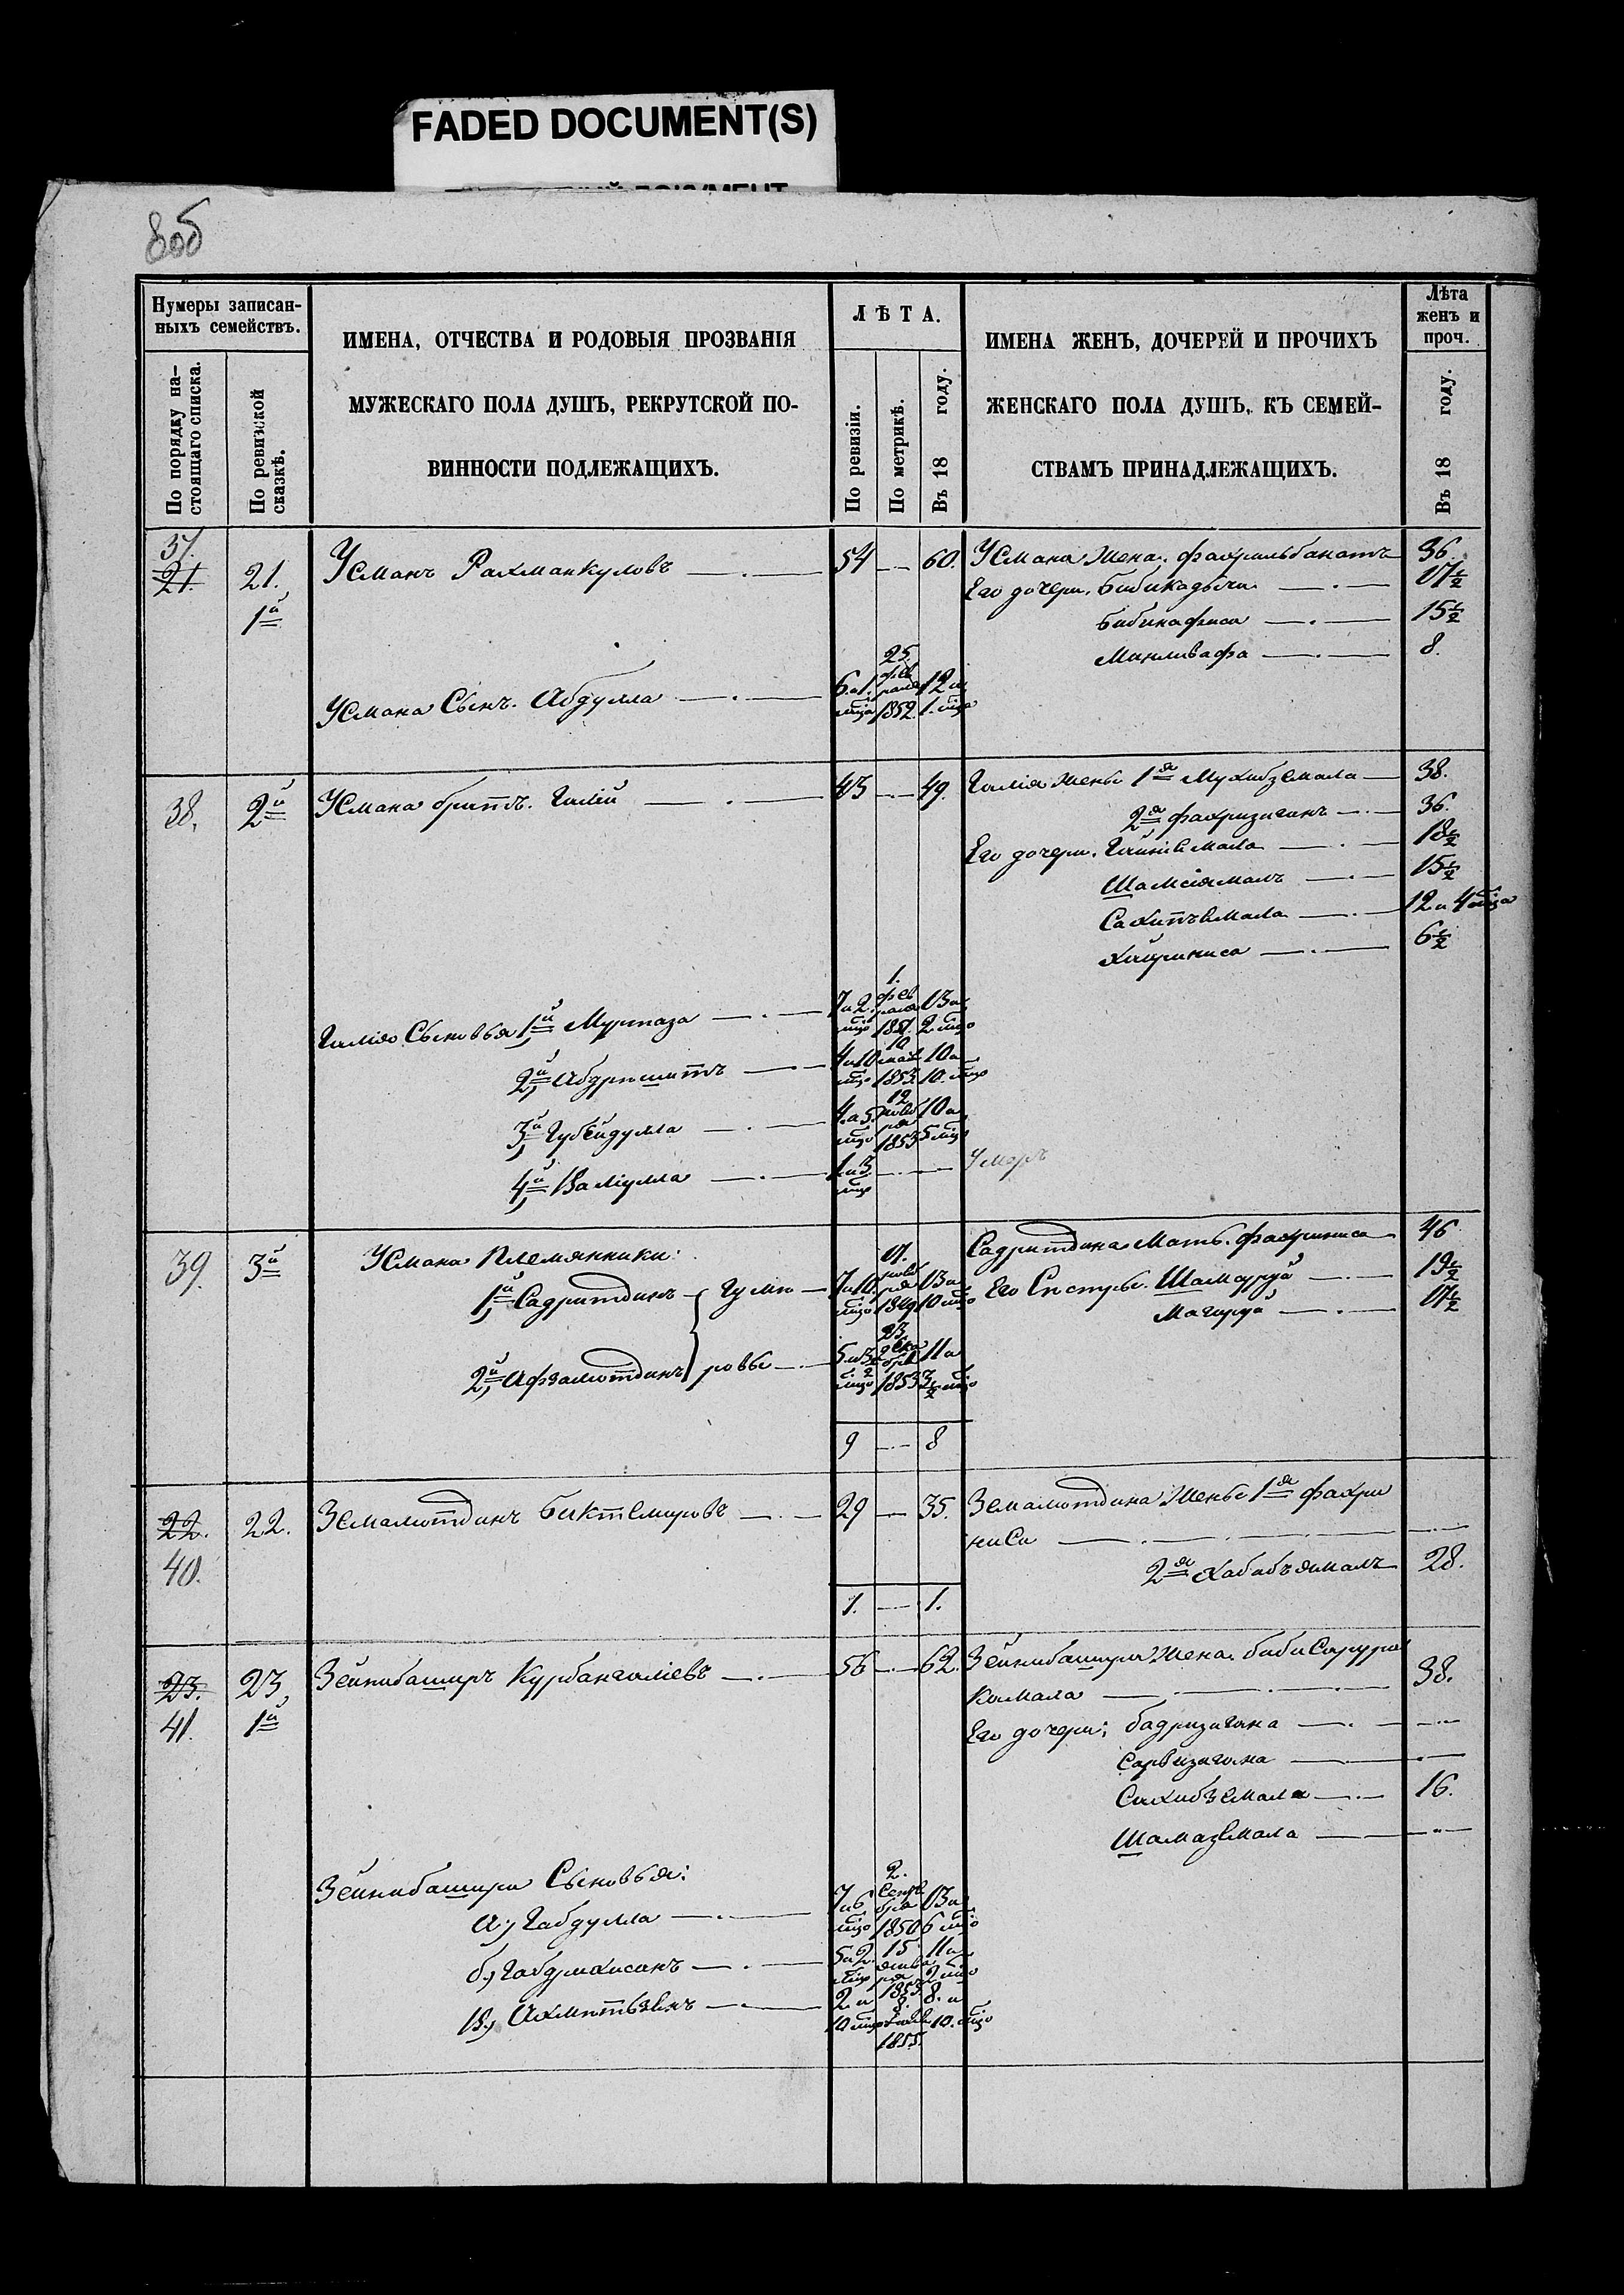 FADED DOCUMENT(S)
80б
Нумеры записан-
ныхъ семействъ.
По порядку на-
стоящаго списка.
По ревизской
сказкѣ.
ИМЕНА, ОТЧЕСТВА И РОДОВЫЯ ПРОЗВАНІЯ
МУЖЕСКАГО ПОЛА ДУШЪ, РЕКРУТСКОЙ ПО-
ВИННОСТИ ПОДЛЕЖАЩИХЪ.
ЛѢТА.
По ревизіи.
По метрикѣ.
Въ 18 году.
ИМЕНА ЖЕНЪ, ДОЧЕРЕЙ И ПРОЧИХЪ
ЖЕНСКАГО ПОЛА ДУШЪ, КЪ СЕМЕЙ-
СТВАМЪ ПРИНАДЛЕЖАЩИХЪ.
Лѣта
женъ и
проч.
Въ 18 году.
37.
21. 21. Усманъ Рахманкуловъ 54 60. Усмана Жена. Фахрильбанатъ 36.
1й Его дочери. Бибикадыча 17½
Бибинафиса 15½
Минливафа 8.
Усмана Сынъ. Абдулла 6 и 1. мѣца 25 февраля 1852. 12 и 1. мѣца
38. 2й Усмана братъ. Галій 43 49. Галія жены 1я Мухибземала 38.
2я Фахризиганъ 36.
Его дочери. Гайниемала 18½
Шамсіямалъ 15½
Сахипъемала 12 и 4 мѣца
Хайриниса 6½
Галія Сыновья 1й Муртаза 7 и 2. мѣц 1. февраля 1851. 13 и 2. мѣц
2й Абдришитъ 4 и 10 мѣц 10 мая 1853. 10 и 10. мѣц
3й Губейдулла 4 и 5. мѣц 12 1853 10 и 5 мѣц
4й Валіулла 1 и 3 мѣц Умеръ
39. 3й Усмана Племянники: Садритдина Мать. Фахриниса 46
1й Садритдинъ Гуме 7 и 10. мѣц 17. 1849 13 и 10 мѣц Его Сестры. 19½
2й Афзалютдинъ ровы 23 декабря 1853 11 и 17½
9 8
22. 22. Земалютдинъ Биктемировъ 29 35. Земалютдина Жены 1я Фахри
ниса
40. 2я Хабибъямалъ 28.
1. 1.
23. 23, Зейнибаширъ Курбангаліевъ 56 62. Зейнибашира Жена. Биби Сарура
41. 1й Камала 38.
Его дочери; Бадризигана
Сарвизигана
Сахибземала 16.
Шамаземала
Зейнибашира Сыновья:
а., Габдулла 7 и 6 мѣц 2. Сентября 1850 13 и 6 мѣц
б., Габдулхисанъ 5 и 2. мѣц 15 января 1853 11 и 2 мѣц
в., Ахметьзянъ 2. и 10 мѣц 8. 1855. 8. и 10. мѣц